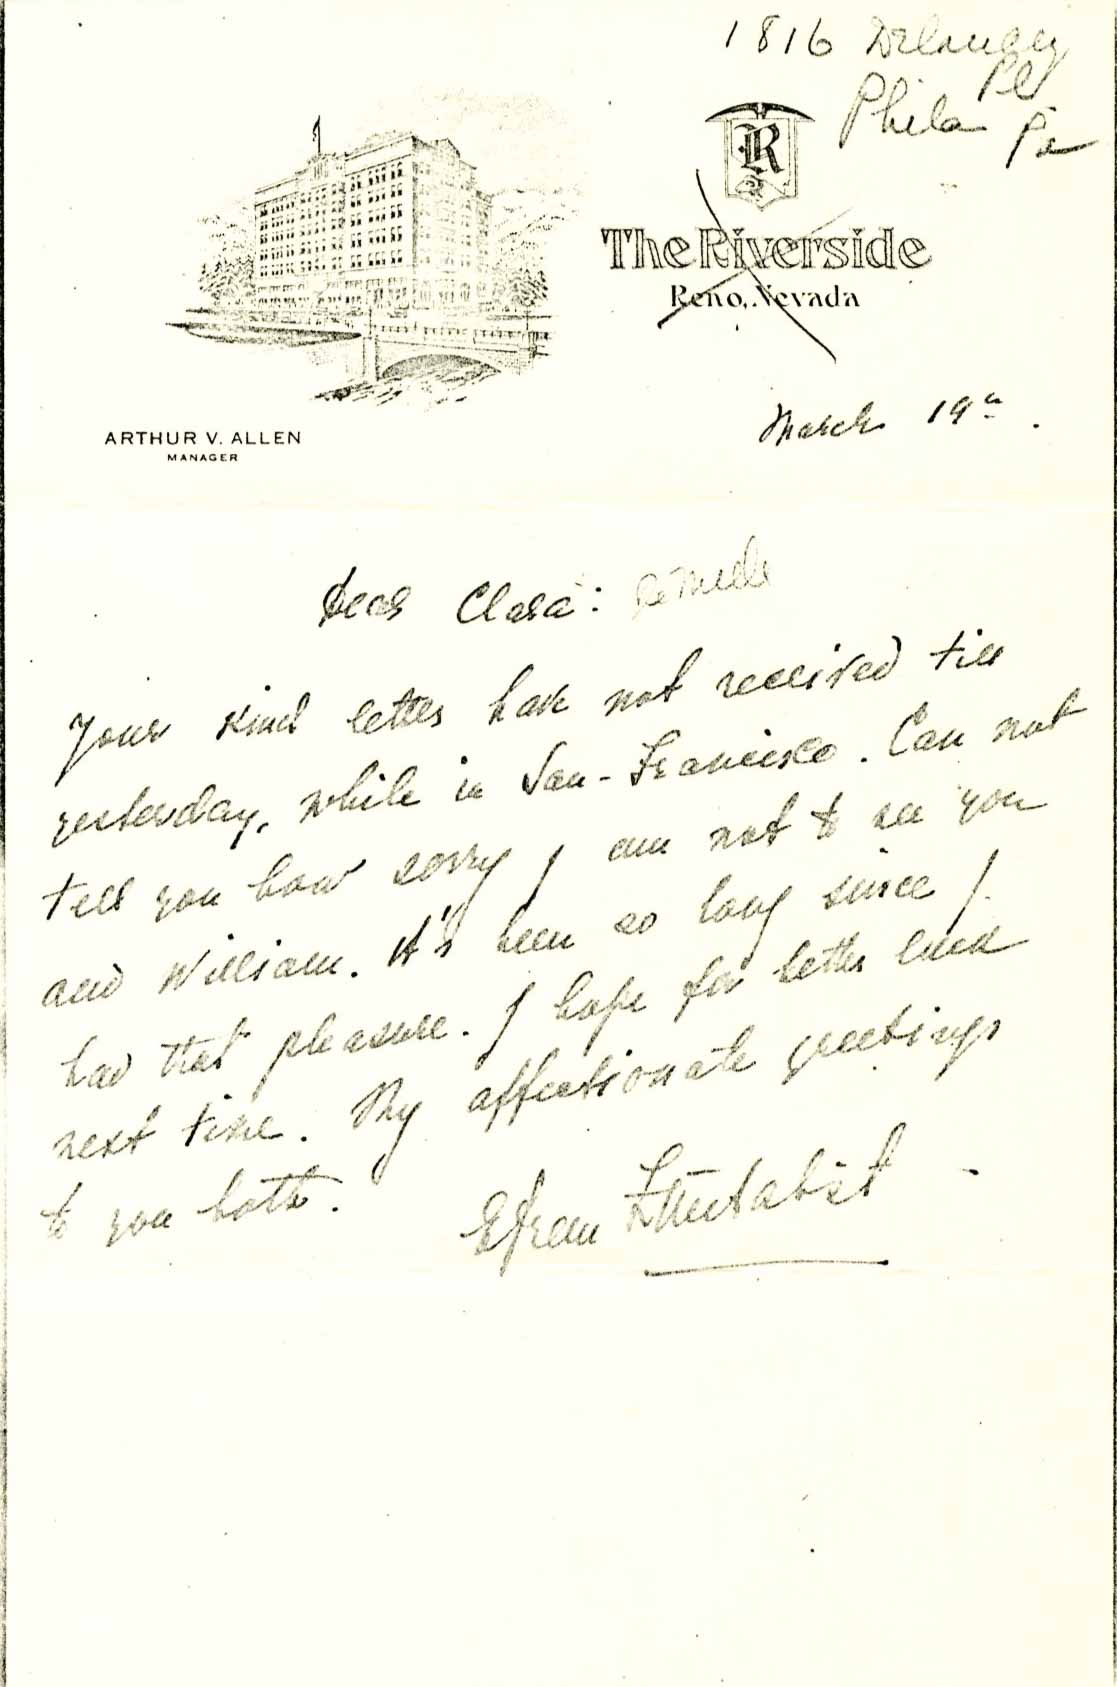 1816 Delancey
Pl
Phila Pa
R
The Riverside
Reno, Nevada
ARTHUR V. ALLEN
MANAGER
March 19th.
Dear Clara: De Mille
Your kind letter have not received till
yesterday, while in San-Francisco. Can not
tell you how sorry I am not to see you
and William. It's been so long since I
had that pleasure. I hope for better luck
next time. My affectionate greetings
to you both.
Efrem Zimbalist